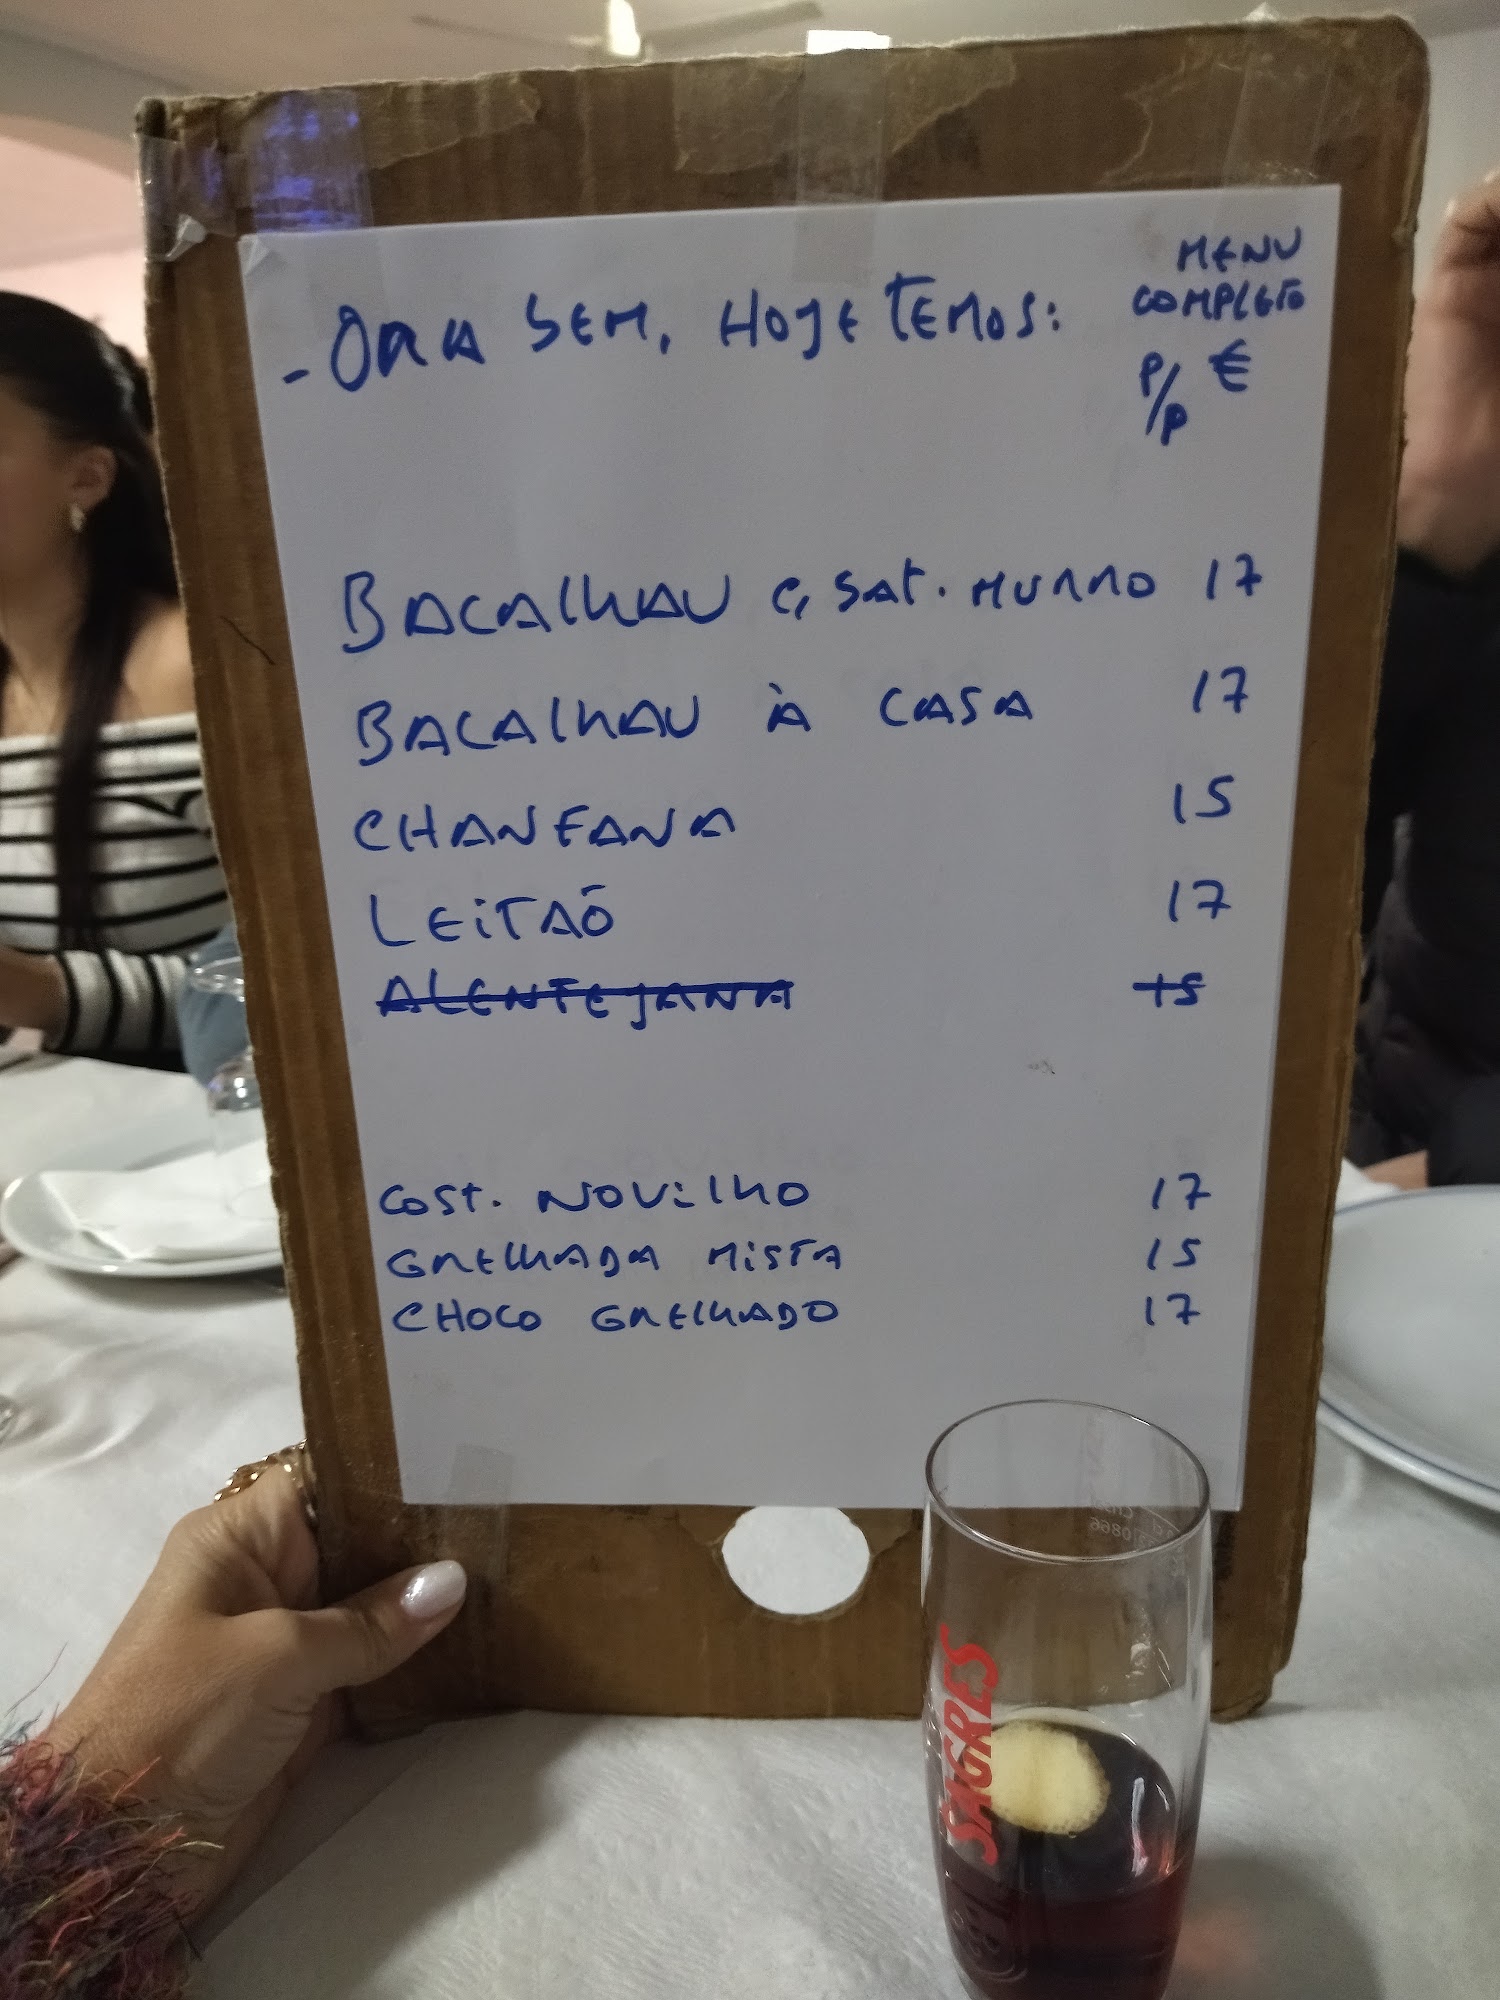 - ORA BEM, HOJE TEMOS:
MENU
COMPLETO
P/P €
BACALHAU C, BAT. MURRO 17
BACALHAU À CASA 17
CHANFANA 15
LEITÃO 17
ALENTEJANA 15
COST. NOVILHO 17
GRELHADA MISTA 15
CHOCO GRELHADO 17
SAGRES